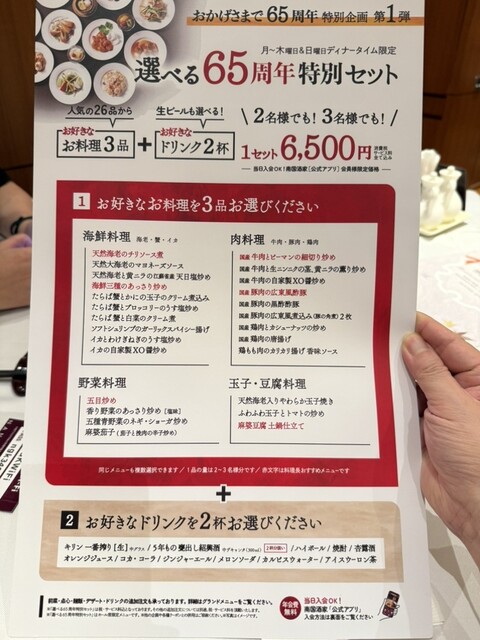 おかげさまで65周年 特別企画 第1弾
月～木曜日&日曜日ディナータイム限定
選べる65周年特別セット
人気の26品から
お好きな
お料理3品
+
生ビールも選べる!
お好きな
ドリンク2杯
2名様でも! 3名様でも!
1セット6,500円
当日入会OK! 南国酒家「公式アプリ」会員様限定価格
1 お好きなお料理を3品お選びください
海鮮料理 海老・蟹・イカ
天然海老のチリソース煮
天然大海老のマヨネーズソース
天然海老と黄ニラの江蘇省産天日塩炒め
海鮮三種のあっさり炒め
たらば蟹とかにの玉子のクリーム煮込み
たらば蟹とブロッコリーのうす塩炒め
たらば蟹と白菜のクリーム煮
ソフトシュリンプのガーリックスパイシー揚げ
イカとわけぎねぎのうす塩炒め
イカの自家製XO醬炒め
肉料理 牛肉・豚肉・鶏肉
国産 牛肉とピーマンの細切り炒め
国産 牛肉と生ニンニクの茎、黄ニラの薫り炒め
国産 牛肉の自家製XO醬炒め
国産 豚肉の広東風酢豚
国産 豚肉の黒酢酢豚
国産 豚肉の広東風煮込み(豚の角煮)2枚
国産 鶏肉とカシューナッツの炒め
国産 鶏肉の唐揚げ
鶏もも肉のカリカリ揚げ 香味ソース
野菜料理
五目炒め
香り野菜のあっさり炒め [塩味]
五種青野菜のネギ・ショーガ炒め
麻婆茄子(茄子と挽肉の辛子炒め)
玉子・豆腐料理
天然海老入りやわらか玉子焼き
ふわふわ玉子とトマトの炒め
麻婆豆腐 土鍋仕立て
同じメニューも複数選択できます / 1品の量は2～3名様分です / 赤文字は料理長おすすめメニューです
+
2 お好きなドリンクを2杯お選びください
キリン 一番搾り[生] 中グラス / 5年もの甕出し紹興酒 / ハイボール / 焼酎 / 杏露酒
オレンジジュース / コカ・コーラ / ジンジャーエール / メロンソーダ / カルピスウォーター / アイスウーロン茶
前菜・点心・麺類・デザート・ドリンクの追加注文も承っております。詳細はグランドメニューをご覧ください。
年会費無料
当日入会OK!
南国酒家「公式アプリ」
入会方法は裏面をご覧ください